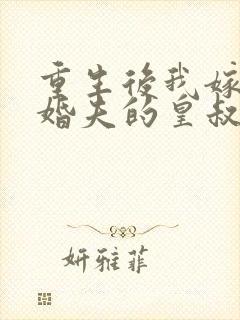 重生後我嫁
婚夫的皇叔
妍雅菲